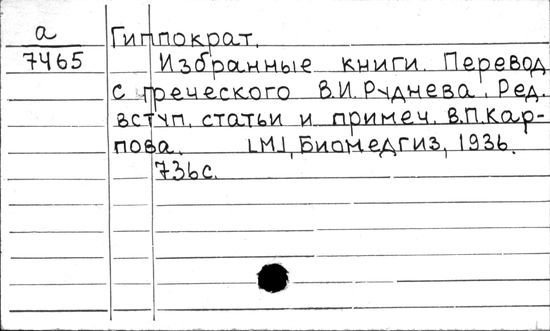 а
7465
Гиппократ.
Избранные книги. Перевод
с греческого В.И.Руднева. Ред.
вступ. статьи и примеч. В.П.Кар-
пова. [М], Биомедгиз, 1936.
736с.